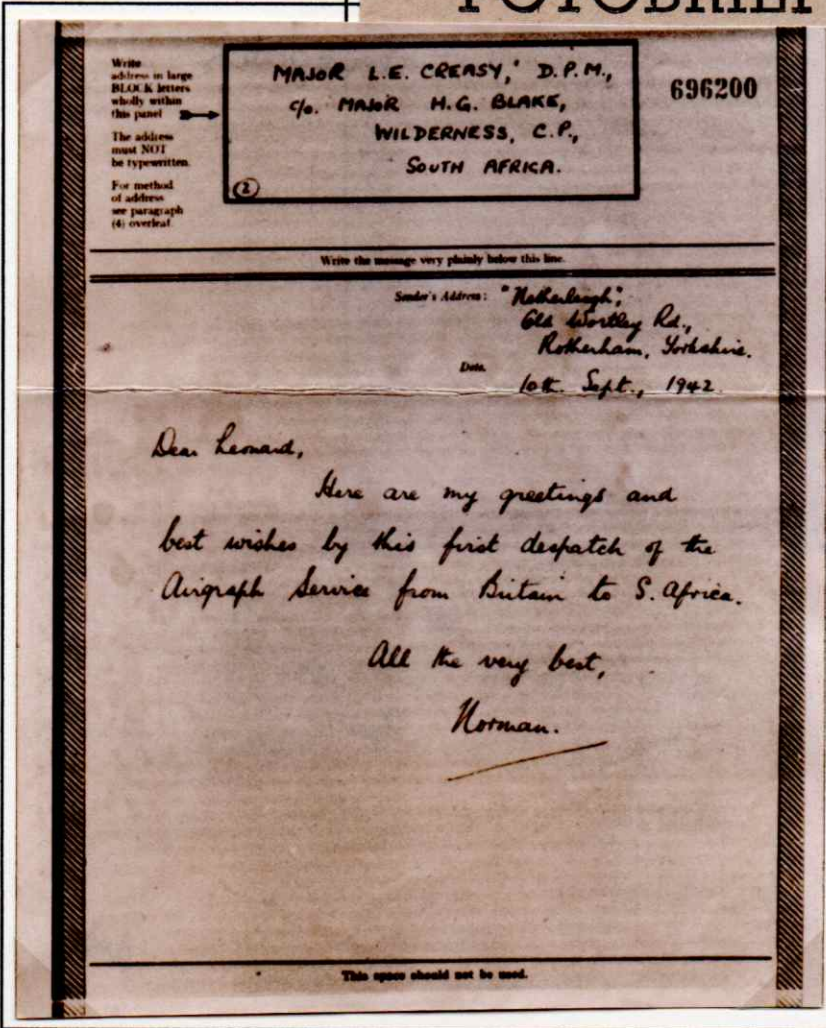 FOTOBRIEF
Write
address in large
BLOCK letters
wholly within
this panel
The address
must NOT
be typewritten.
For method
of address
see paragraph
(4) overleaf
MAJOR L.E. CREASY, D.P.M.,
c/o. MAJOR H.G. BLAKE,
WILDERNESS, C.P.,
SOUTH AFRICA.
(2)
696200
Write the message very plainly below this line.
Sender's Address: "Netherleigh",
Old Wortley Rd.,
Rotherham, Yorkshire.
Date. 10th. Sept., 1942
Dear Leonard,
Here are my greetings and
best wishes by this first despatch of the
Airgraph Service from Britain to S. Africa.
All the very best,
Norman.
This space should not be used.